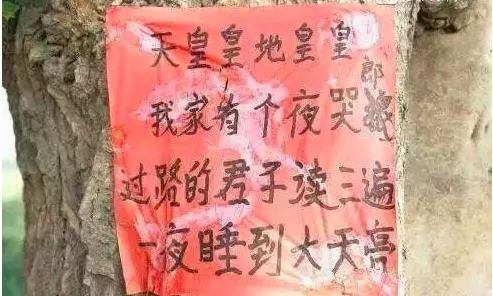 天皇皇地皇皇
我家有个夜哭郎
过路的君子读三遍
一夜睡到大天亮